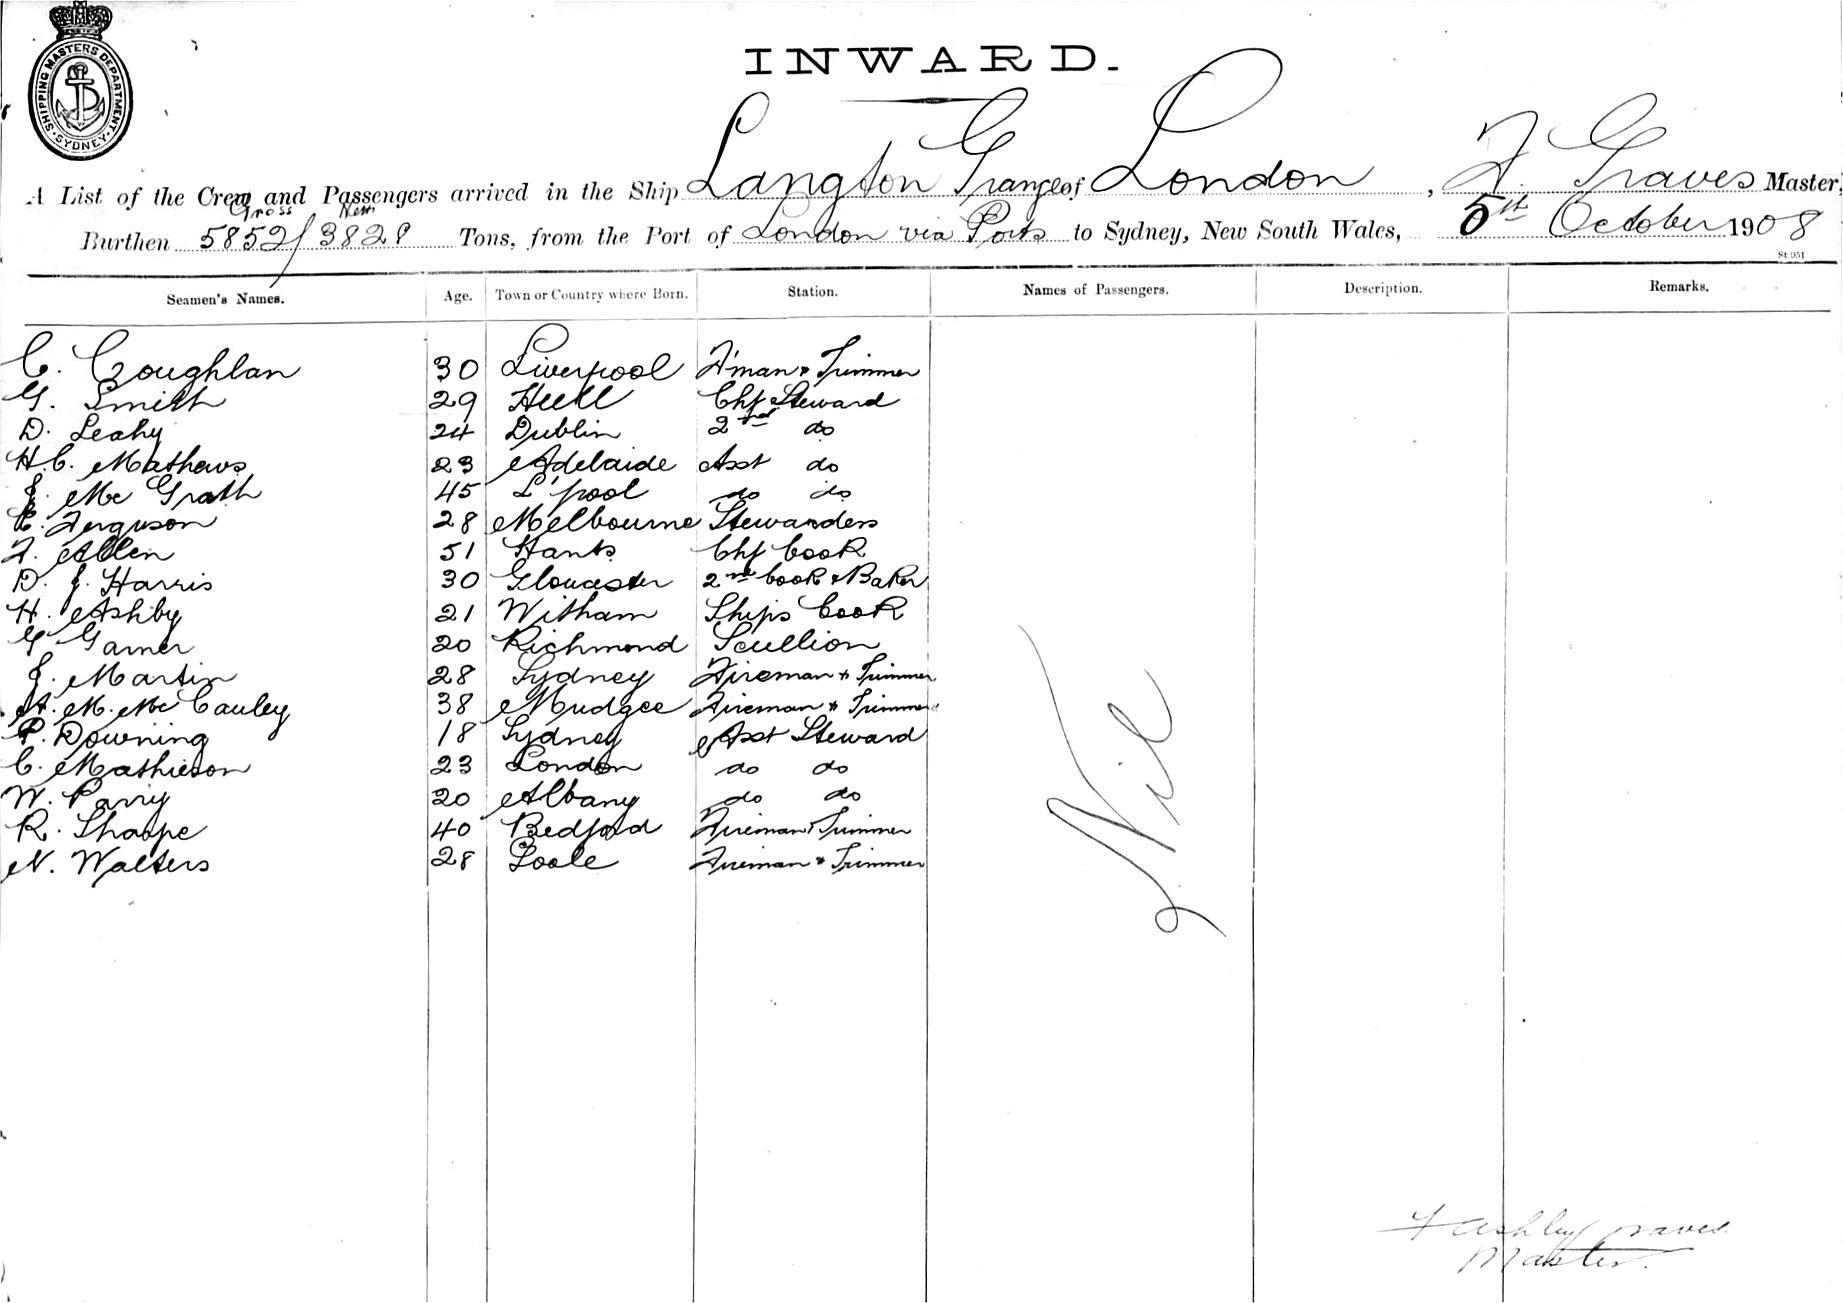 SHIPPING MASTERS DEPARTMENT. SYDNEY
INWARD.
A List of the Crew and Passengers arrived in the Ship Langton Grange of London, F. Graves Master,
Gross Nett
Burthen 5852/3828 Tons, from the Port of London via Ports to Sydney, New South Wales, 5th October 1908
St 051
Seamen's Names. Age. Town or Country where Born. Station. Names of Passengers. Description. Remarks.
C. Coughlan 30 Liverpool F'man & Trimmer
G. Smith 29 Hull Chf Steward
D. Leahy 24 Dublin 2nd do
H.C. Mathews 23 Adelaide Asst do
J. Mc Grath 45 L'pool do do
E. Ferguson 28 Melbourne Stewardess
F. Allen 51 Hants Chf Cook
D. J. Harris 30 Gloucester 2nd Cook & Baker
H. Ashby 21 Witham Ships Cook
G. Garner 20 Richmond Scullion
J. Martin 28 Sydney Fireman & Trimmer
A. M. Mc Cauley 38 Mudgee Fireman & Trimmer
P. Downing 18 Sydney Asst Steward
C. Mathieson 23 London do do
W. Parry 20 Albany do do
R. Sharpe 40 Bedford Fireman & Trimmer
N. Walters 28 Poole Fireman & Trimmer
Nil
F Ashley Graves
Master.